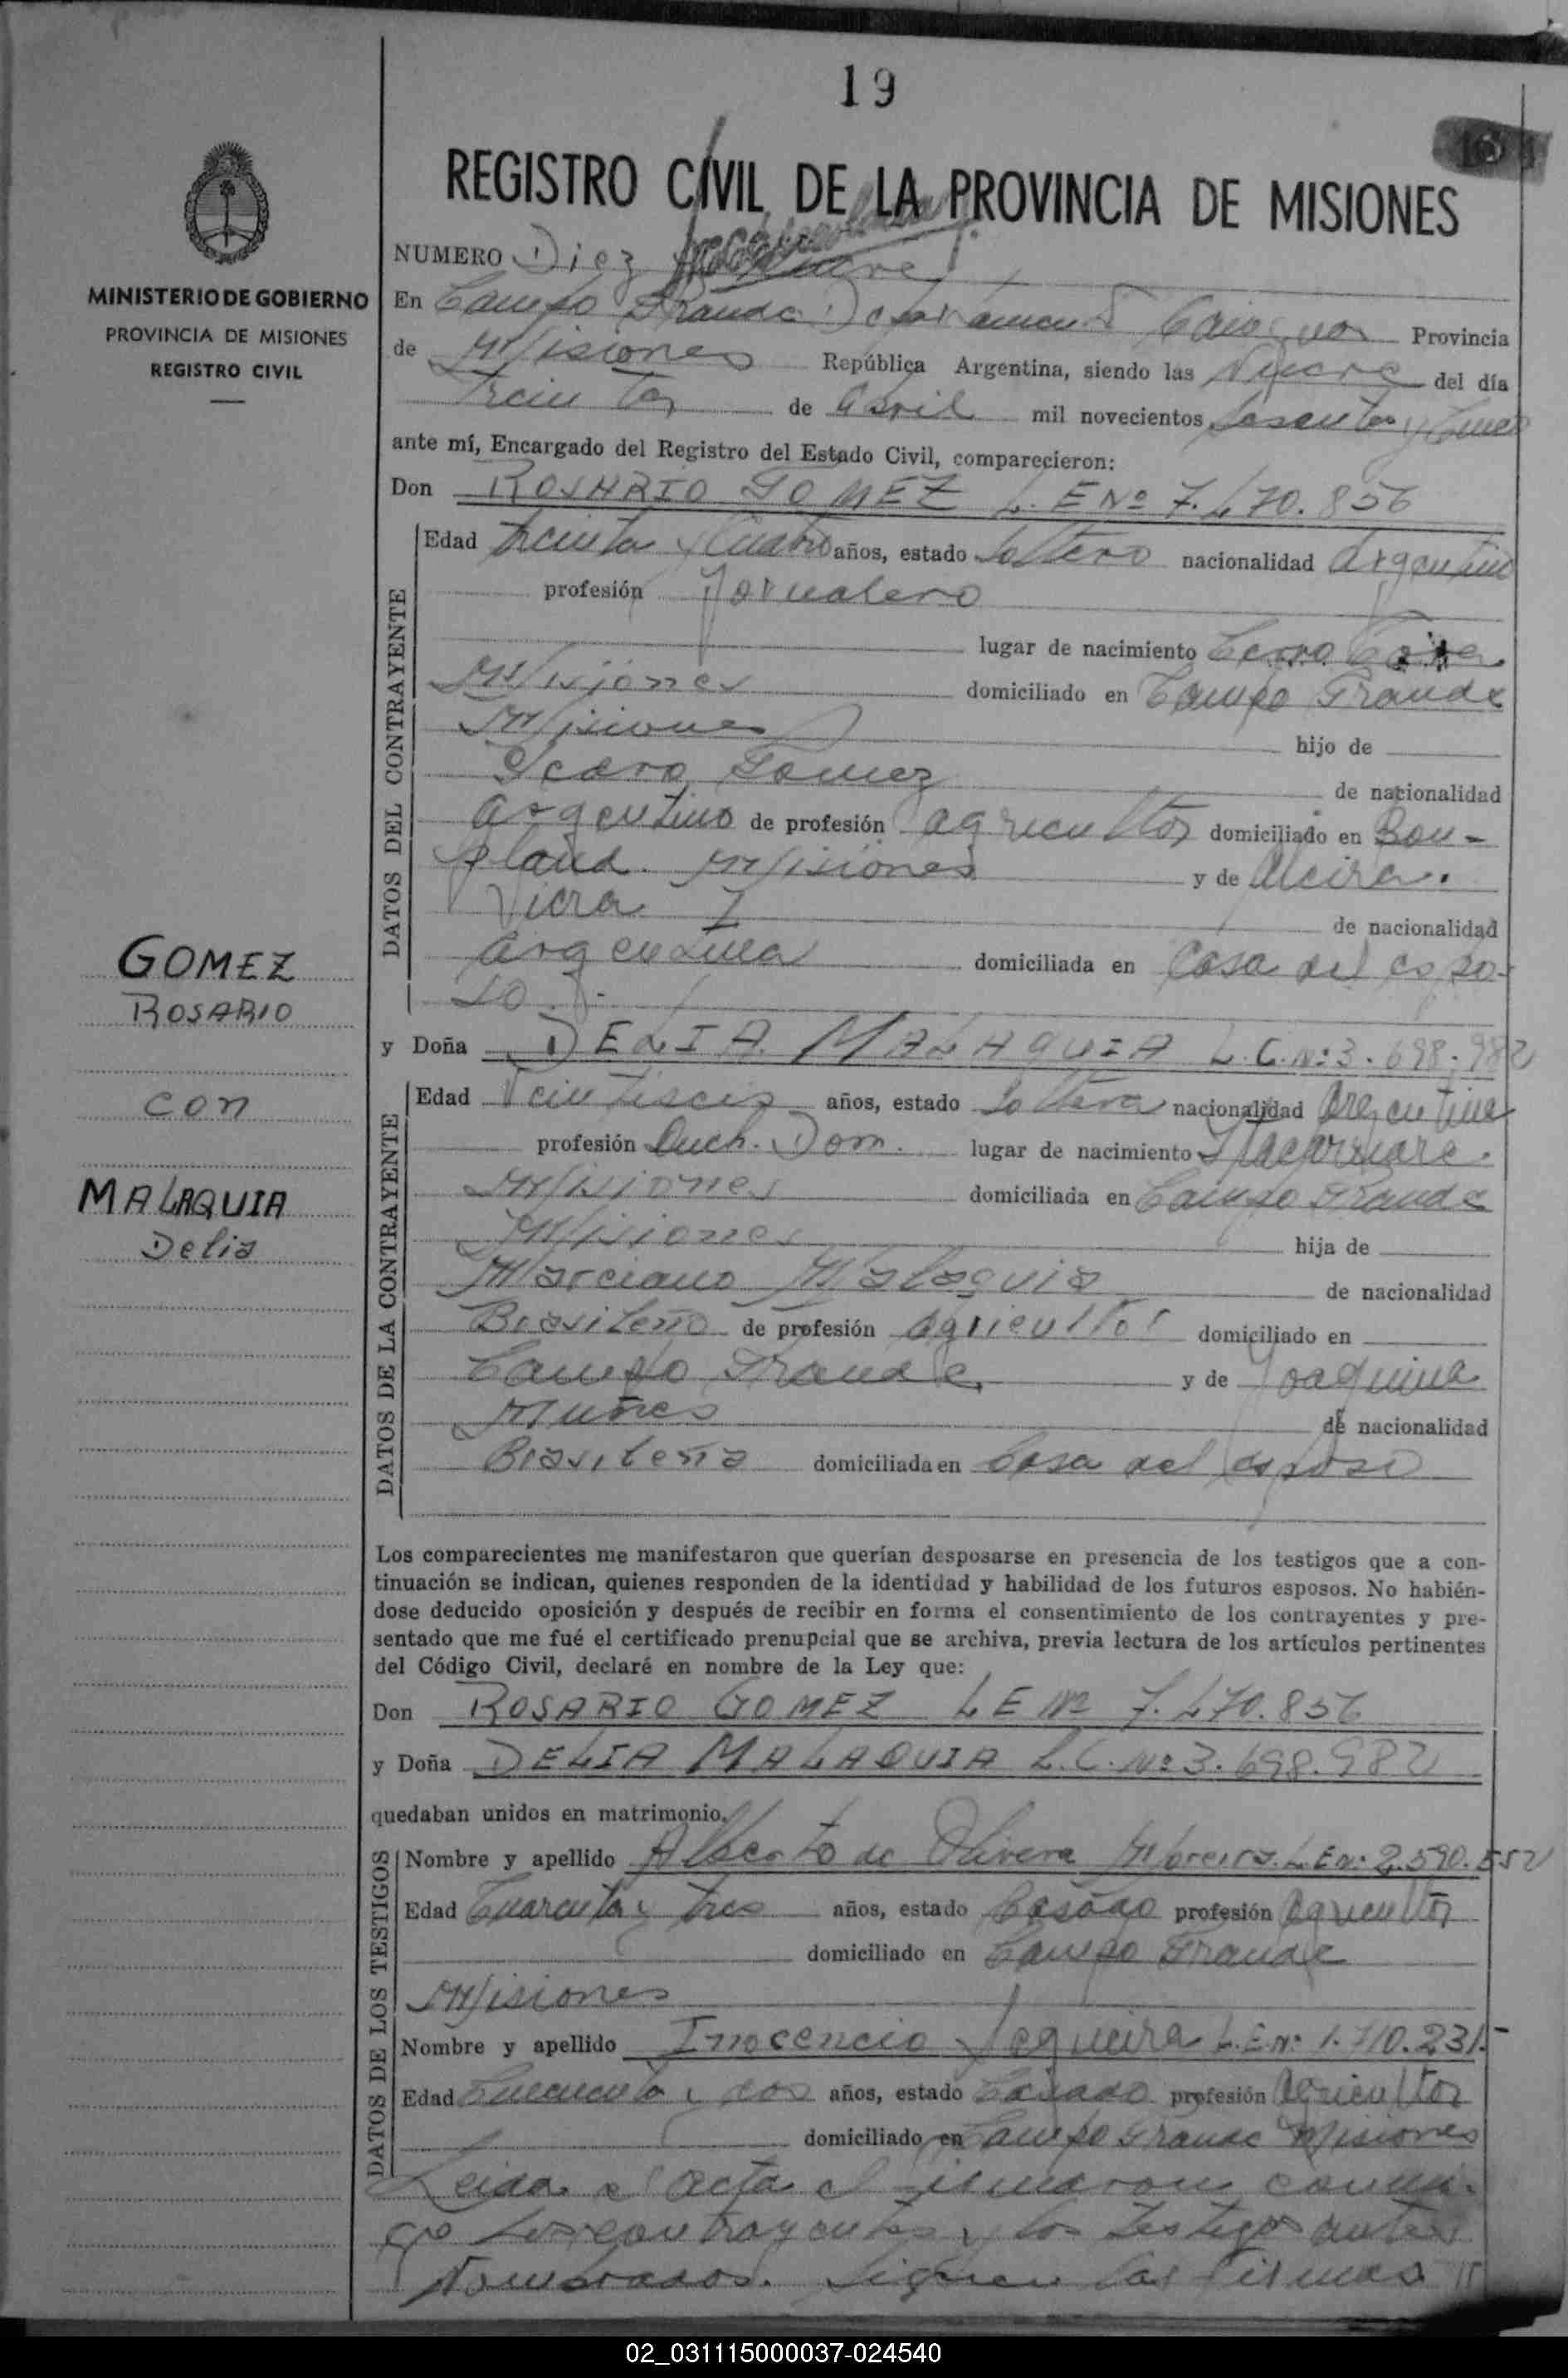 19
REGISTRO CIVIL DE LA PROVINCIA DE MISIONES
MINISTERIO DE GOBIERNO
PROVINCIA DE MISIONES
REGISTRO CIVIL
NUMERO Diez
En Campo Grande Departamento Provincia
de Misiones República Argentina, siendo las Nueve del día
treinta de Abril mil novecientos sesenta y
ante mí, Encargado del Registro del Estado Civil, comparecieron:
Don ROSARIO GOMEZ L. E Nº 7.470.856
DATOS DEL CONTRAYENTE
Edad treinta y Cuatro años, estado Soltero nacionalidad Argentino
profesión Jornalero
lugar de nacimiento Cerro Cora
Misiones domiciliado en Campo Grande
Misiones hijo de
Pedro Gomez de nacionalidad
Argentino de profesión agricultor domiciliado en Bon-
pland. Misiones y de Alcira.
Viera de nacionalidad
argentina domiciliada en Casa del espo-
so.
y Doña DELIA MALAQUIA L.C.Nº 3.698.982
DATOS DE LA CONTRAYENTE
Edad Veintiseis años, estado Soltera nacionalidad Argentina
profesión Queh. Dom. lugar de nacimiento Itacaruare.
Misiones domiciliada en Campo Grande
Misiones hija de
Marciano Malaquia de nacionalidad
Brasileño de profesión Agricultor domiciliado en
Campo Grande. y de Joaquina
Muñes de nacionalidad
Brasileña domiciliada en Casa del esposo
GOMEZ
ROSARIO
con
MALAQUIA
Delia
Los comparecientes me manifestaron que querían desposarse en presencia de los testigos que a con-
tinuación se indican, quienes responden de la identidad y habilidad de los futuros esposos. No habién-
dose deducido oposición y después de recibir en forma el consentimiento de los contrayentes y pre-
sentado que me fué el certificado prenupcial que se archiva, previa lectura de los artículos pertinentes
del Código Civil, declaré en nombre de la Ley que:
Don ROSARIO GOMEZ L E Nº 7.470.856
y Doña DELIA MALAQUIA L.C. Nº 3.698.982
quedaban unidos en matrimonio.
DATOS DE LOS TESTIGOS
Nombre y apellido Alberto de Olivera Moreira. L.E nº 2.590.552
Edad Cuarenta y tres años, estado Casado profesión Agricultor
domiciliado en Campo Grande
Misiones
Nombre y apellido Inocencio Sequeira L.E.Nº 1.710.231.-
Edad Cincuenta y dos años, estado Casado profesión Agricultor
domiciliado en Campo Grande Misiones
Leida el Acta firmaron conmi-
go los contrayentes y los testigos antes
Nombrados. Siguen las firmas
02_031115000037-024540